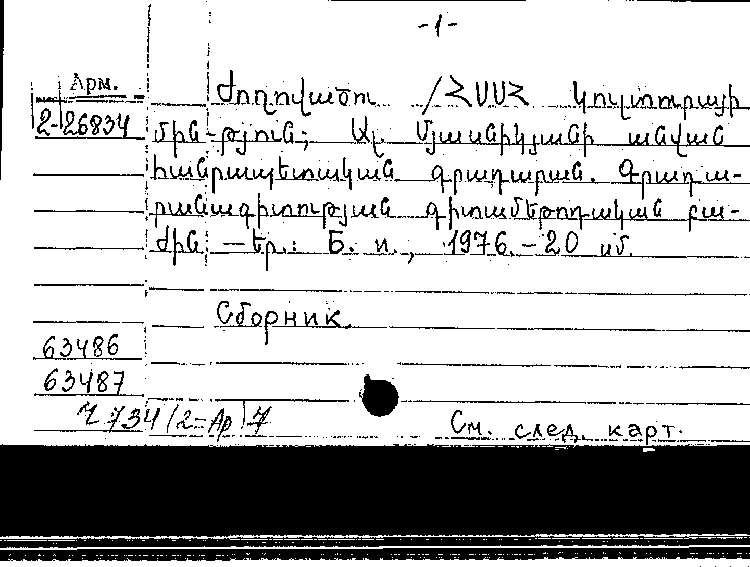 -1-
Арм.
2-26834
Ժողովածու /ՀՍՍՀ Կուլտուրայի
մին-թյուն; Ալ. Մյասնիկյանի անվան
հանրապետական գրադարան. Գրադա-
րանագիտության գիտամեթոդական բա-
ժին. — Եր.: Б. и., 1976. - 20 սմ.
Сборник.
63486
63487
734(2=Ар)7
См. след. карт.